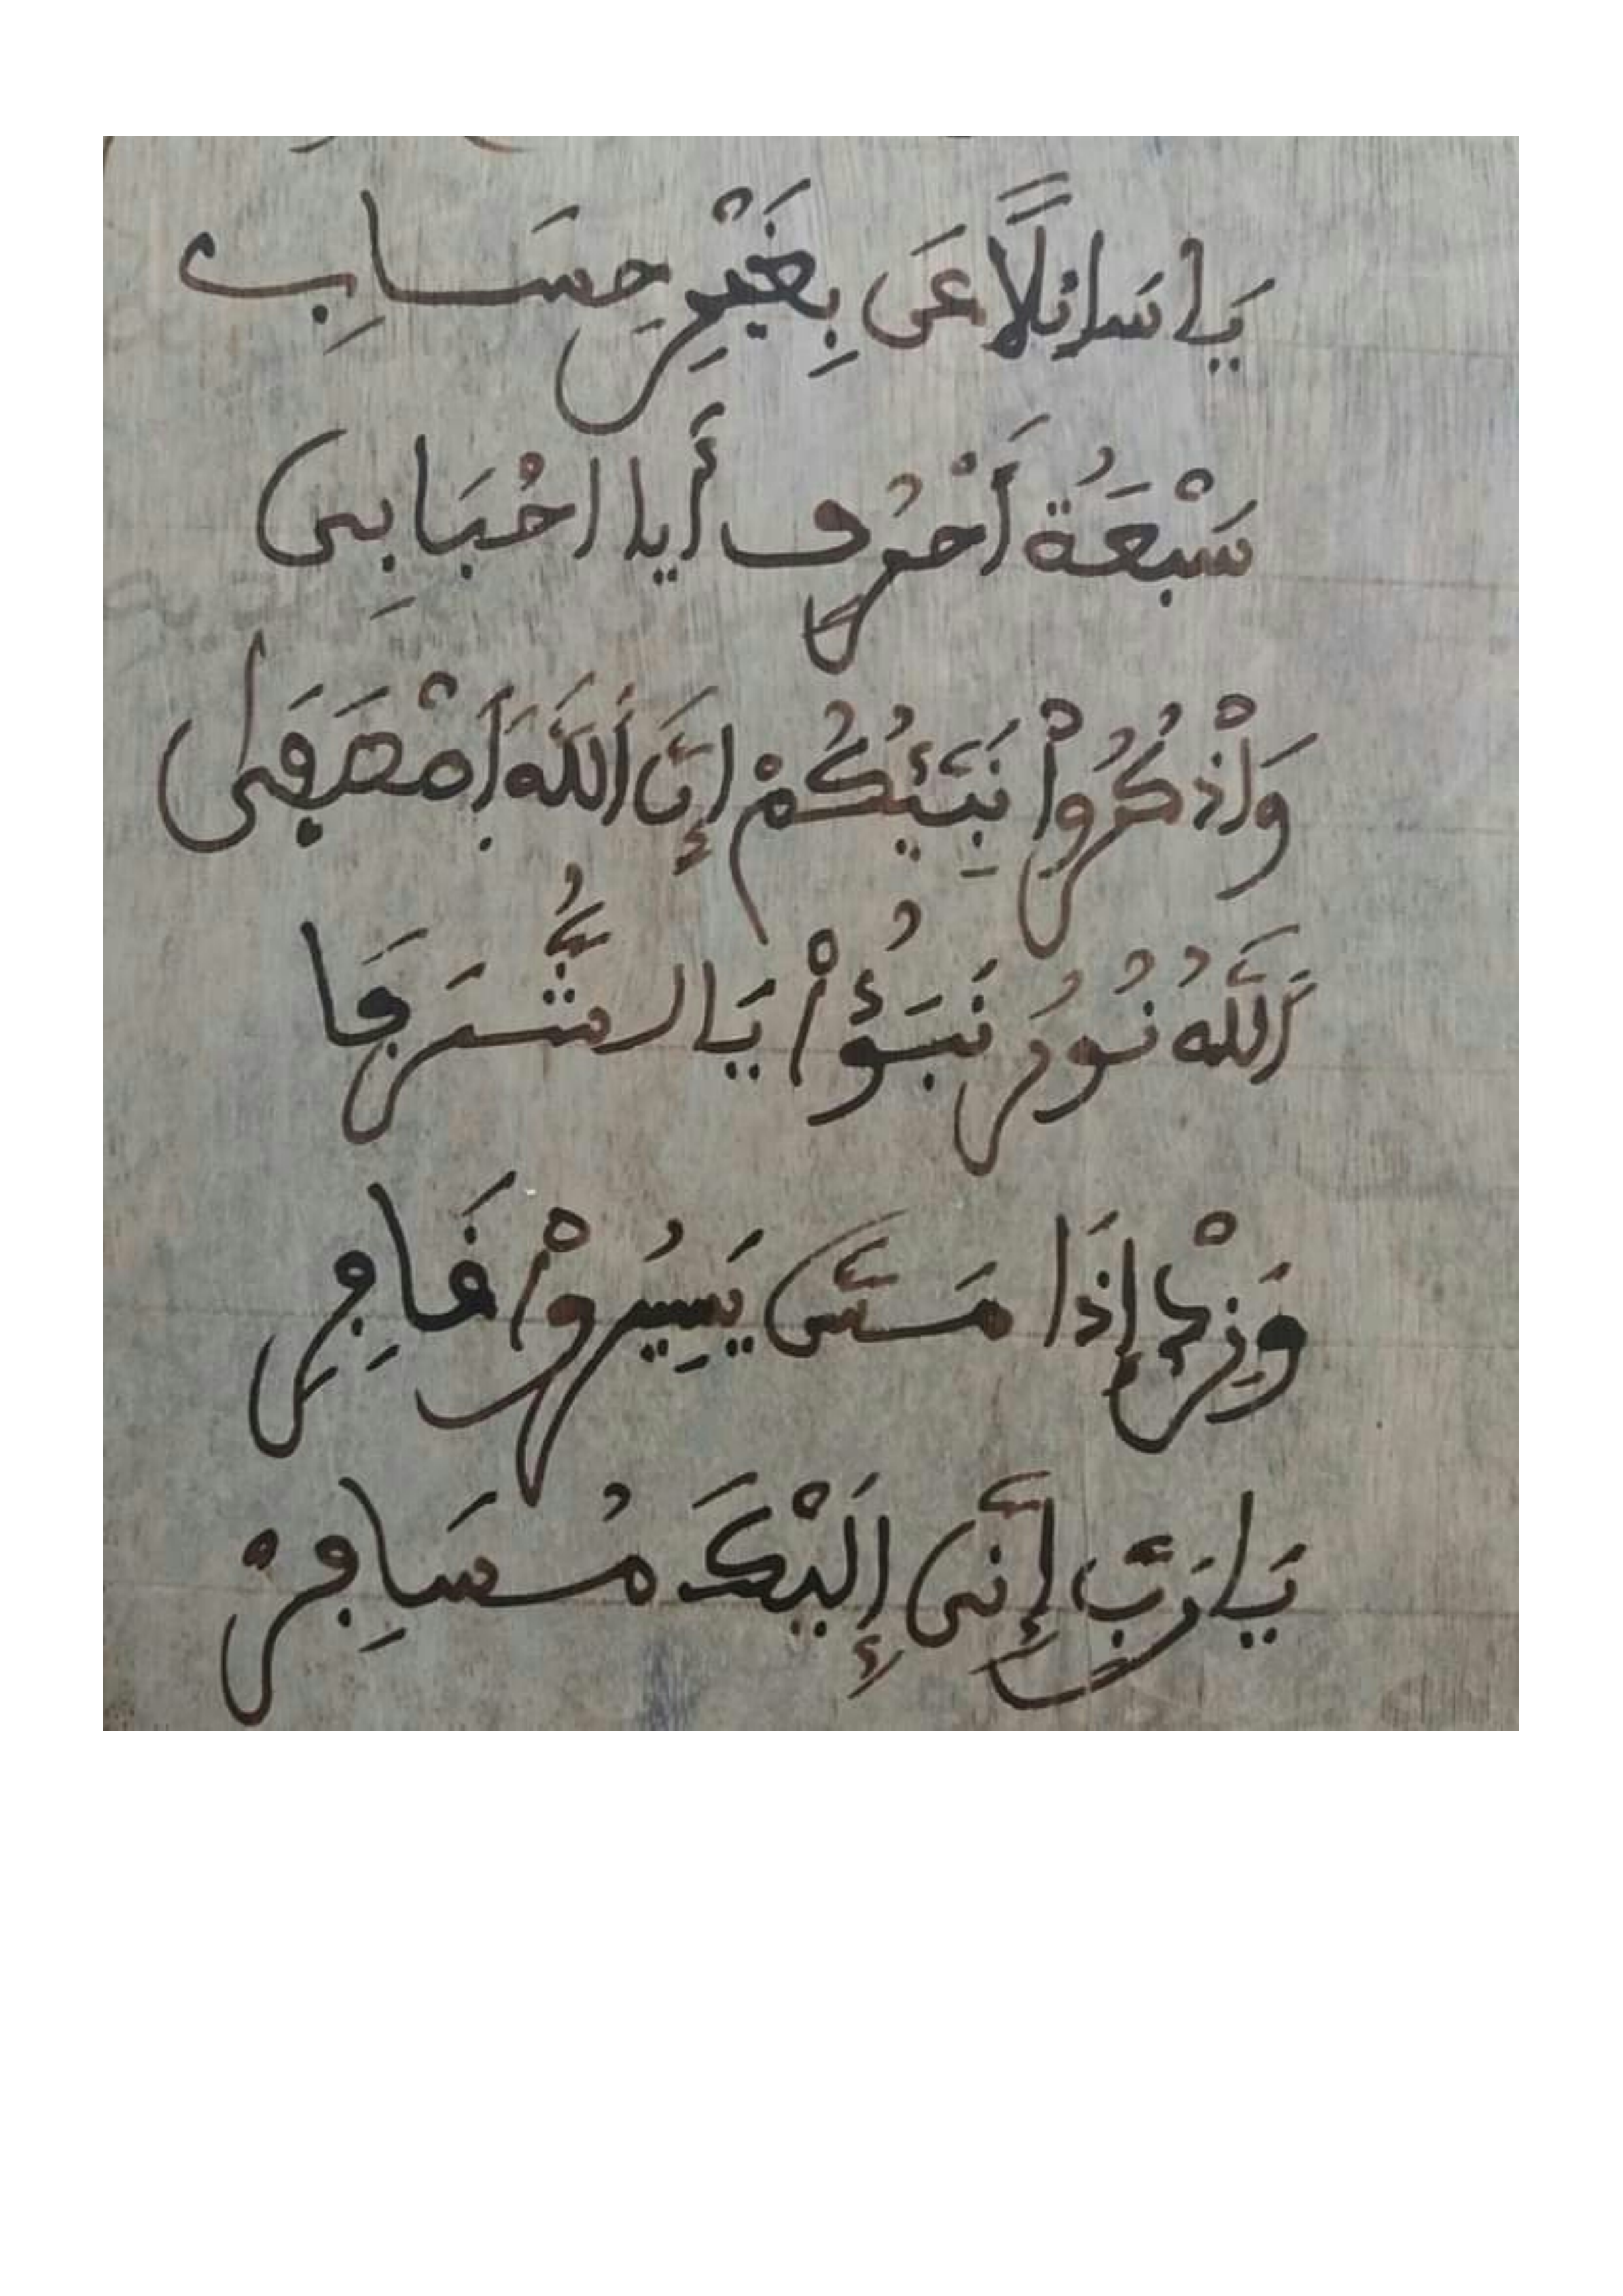 يَا سَائِلًا عَن بِغَيْرِ حِسَابِ
سَبْعَةُ أَحْرُفٍ أَيَا احْبَابِي
وَاْذْكُرُواْ نَبِيَّكُمْ إِنَّ اَللَّهَ اَصْطَفَى
اَللَّهُ نُورُ نَبَؤُاْ يَا الشُّرَفَا
وَزِرْ إِذَا مَسَّ يَسِيرُواْ فَاجِرِ
يَا رَبِّ إِنِّي إِلَيْكَ مُسَافِرْ